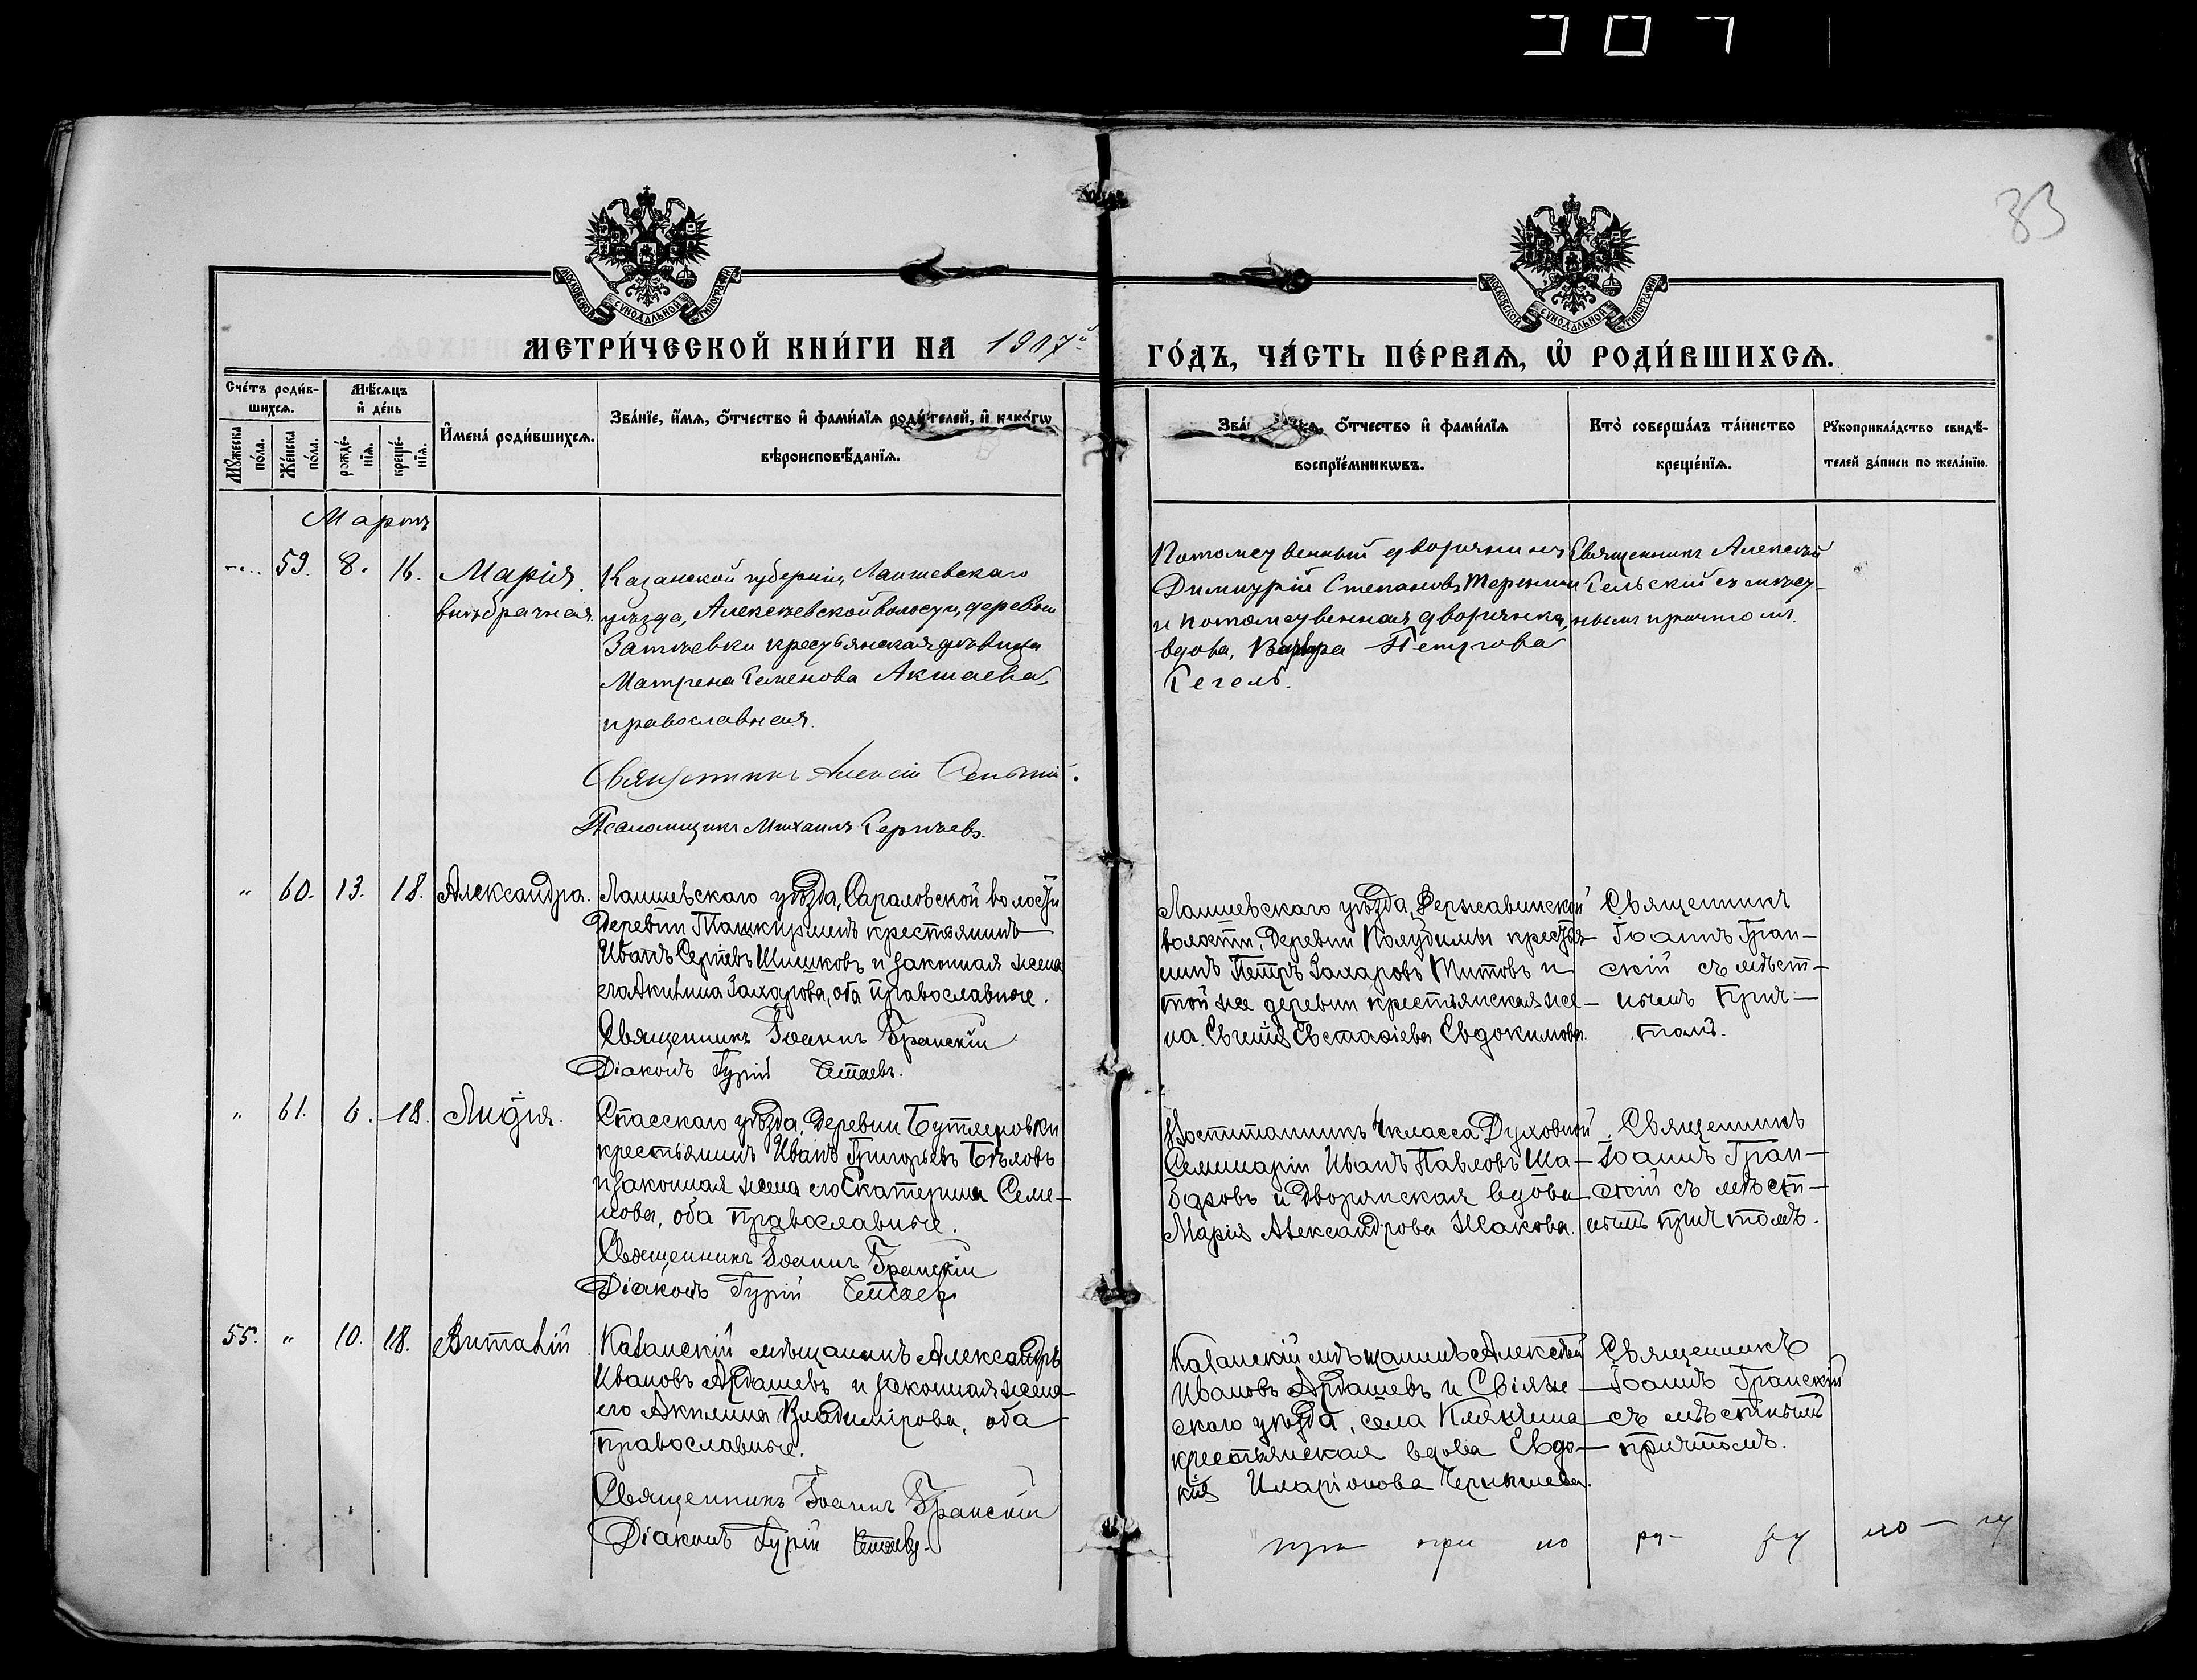 83
МОСКОВСКОЙ СУНОДАЛЬНОЙ ТИПОГРАФІИ
МОСКОВСКОЙ СУНОДАЛЬНОЙ ТИПОГРАФІИ
МЕТРИ́ЧЕСКОЙ КНИ́ГИ НА 1917й
ГО́ДЪ, ЧА́СТЬ ПЕ́РВАѦ, Ѡ҆ РОДИ́ВШИХСѦ.
Сче́тъ роди́в-
шихсѧ.
Мѣ́сѧцъ
и҆ де́нь
Мꙋ́жеска по́ла.
Же́нска по́ла.
рожде́-нїѧ.
креще́-нїѧ.
И҆мена̀ роди́вшихсѧ.
Зва́нїе, и҆́мѧ, ѻ҆́тчество и҆ фами́лїѧ роди́телей, и҆ како́гѡ
вѣроисповѣ́данїѧ.
Зва́ ѻ҆́тчество и҆ фами́лїѧ
воспрїе́мникѡвъ.
Кто̀ соверша́лъ та́инство
креще́нїѧ.
Рꙋкоприкла́дство свидѣ́-
телей за́писи по жела́нїю.
Мартъ
59. 8. 16. Марія
внѣбрачная
Казанской губерніи, Лаишевскаго
уѣзда, Алексѣевской волости, деревни
Затѣевки крестьянская дѣвица
Матрена Семенова Акшаева
православная.
Священникъ Алексій Сельскій.
Псаломщикъ Михаилъ Сергѣевъ.
Потомственный дворянинъ
Димитрій Степановъ Теренинъ
и потомственная дворянка,
вдова, Варвара Петрова
Гегель.
Священникъ Алексѣй
Сельскій съ мѣст-
нымъ причтомъ.
" 60. 13. 18. Александра.
Лаишевскаго уѣзда, Сараловской волости
деревни Ташкирмень крестьянинъ
Иванъ Сергѣевъ Шишковъ и законная жена
его Акилина Захарова, оба православные.
Священникъ Іоаннъ Гранскій
Діаконъ Гурій
Лаишевскаго уѣзда, Державинской
волости, деревни крестья-
нинъ Петръ Захаровъ Титовъ и
той же деревни крестьянская же-
на Евстафіева Евдокимова.
Священникъ
Іоаннъ Гран-
скій съ мѣст-
нымъ прич-
томъ.
" 61. 6. 18. Лидія.
Спасскаго уѣзда, деревни Бутлеровки
крестьянинъ Иванъ Григорьевъ Бѣловъ
и законная жена его Екатерина Семе-
нова, оба православные.
Священникъ Іоаннъ Гранскій
Діаконъ Гурій
Воспитанникъ 4 класса Духовной
Семинаріи Иванъ Павловъ Ша-
и дворянская вдова
Марія Александрова Жакова.
Священникъ
Іоаннъ Гран-
скій съ мѣст-
нымъ причтомъ.
55. " 10. 18. Виталій
Казанскій мѣщанинъ Александръ
Ивановъ Ардашевъ и законная жена
его Акилина Владимірова, оба
православные.
Священникъ Іоаннъ Гранскій
Діаконъ Гурій
Казанскій мѣщанинъ Алексѣй
Ивановъ Ардашевъ и Свіяж-
скаго уѣзда, села Клянчина
крестьянская вдова Евдо-
кія Иларіонова Чернышева.
Священникъ
Іоаннъ Гранскій
съ мѣстнымъ
причтомъ.